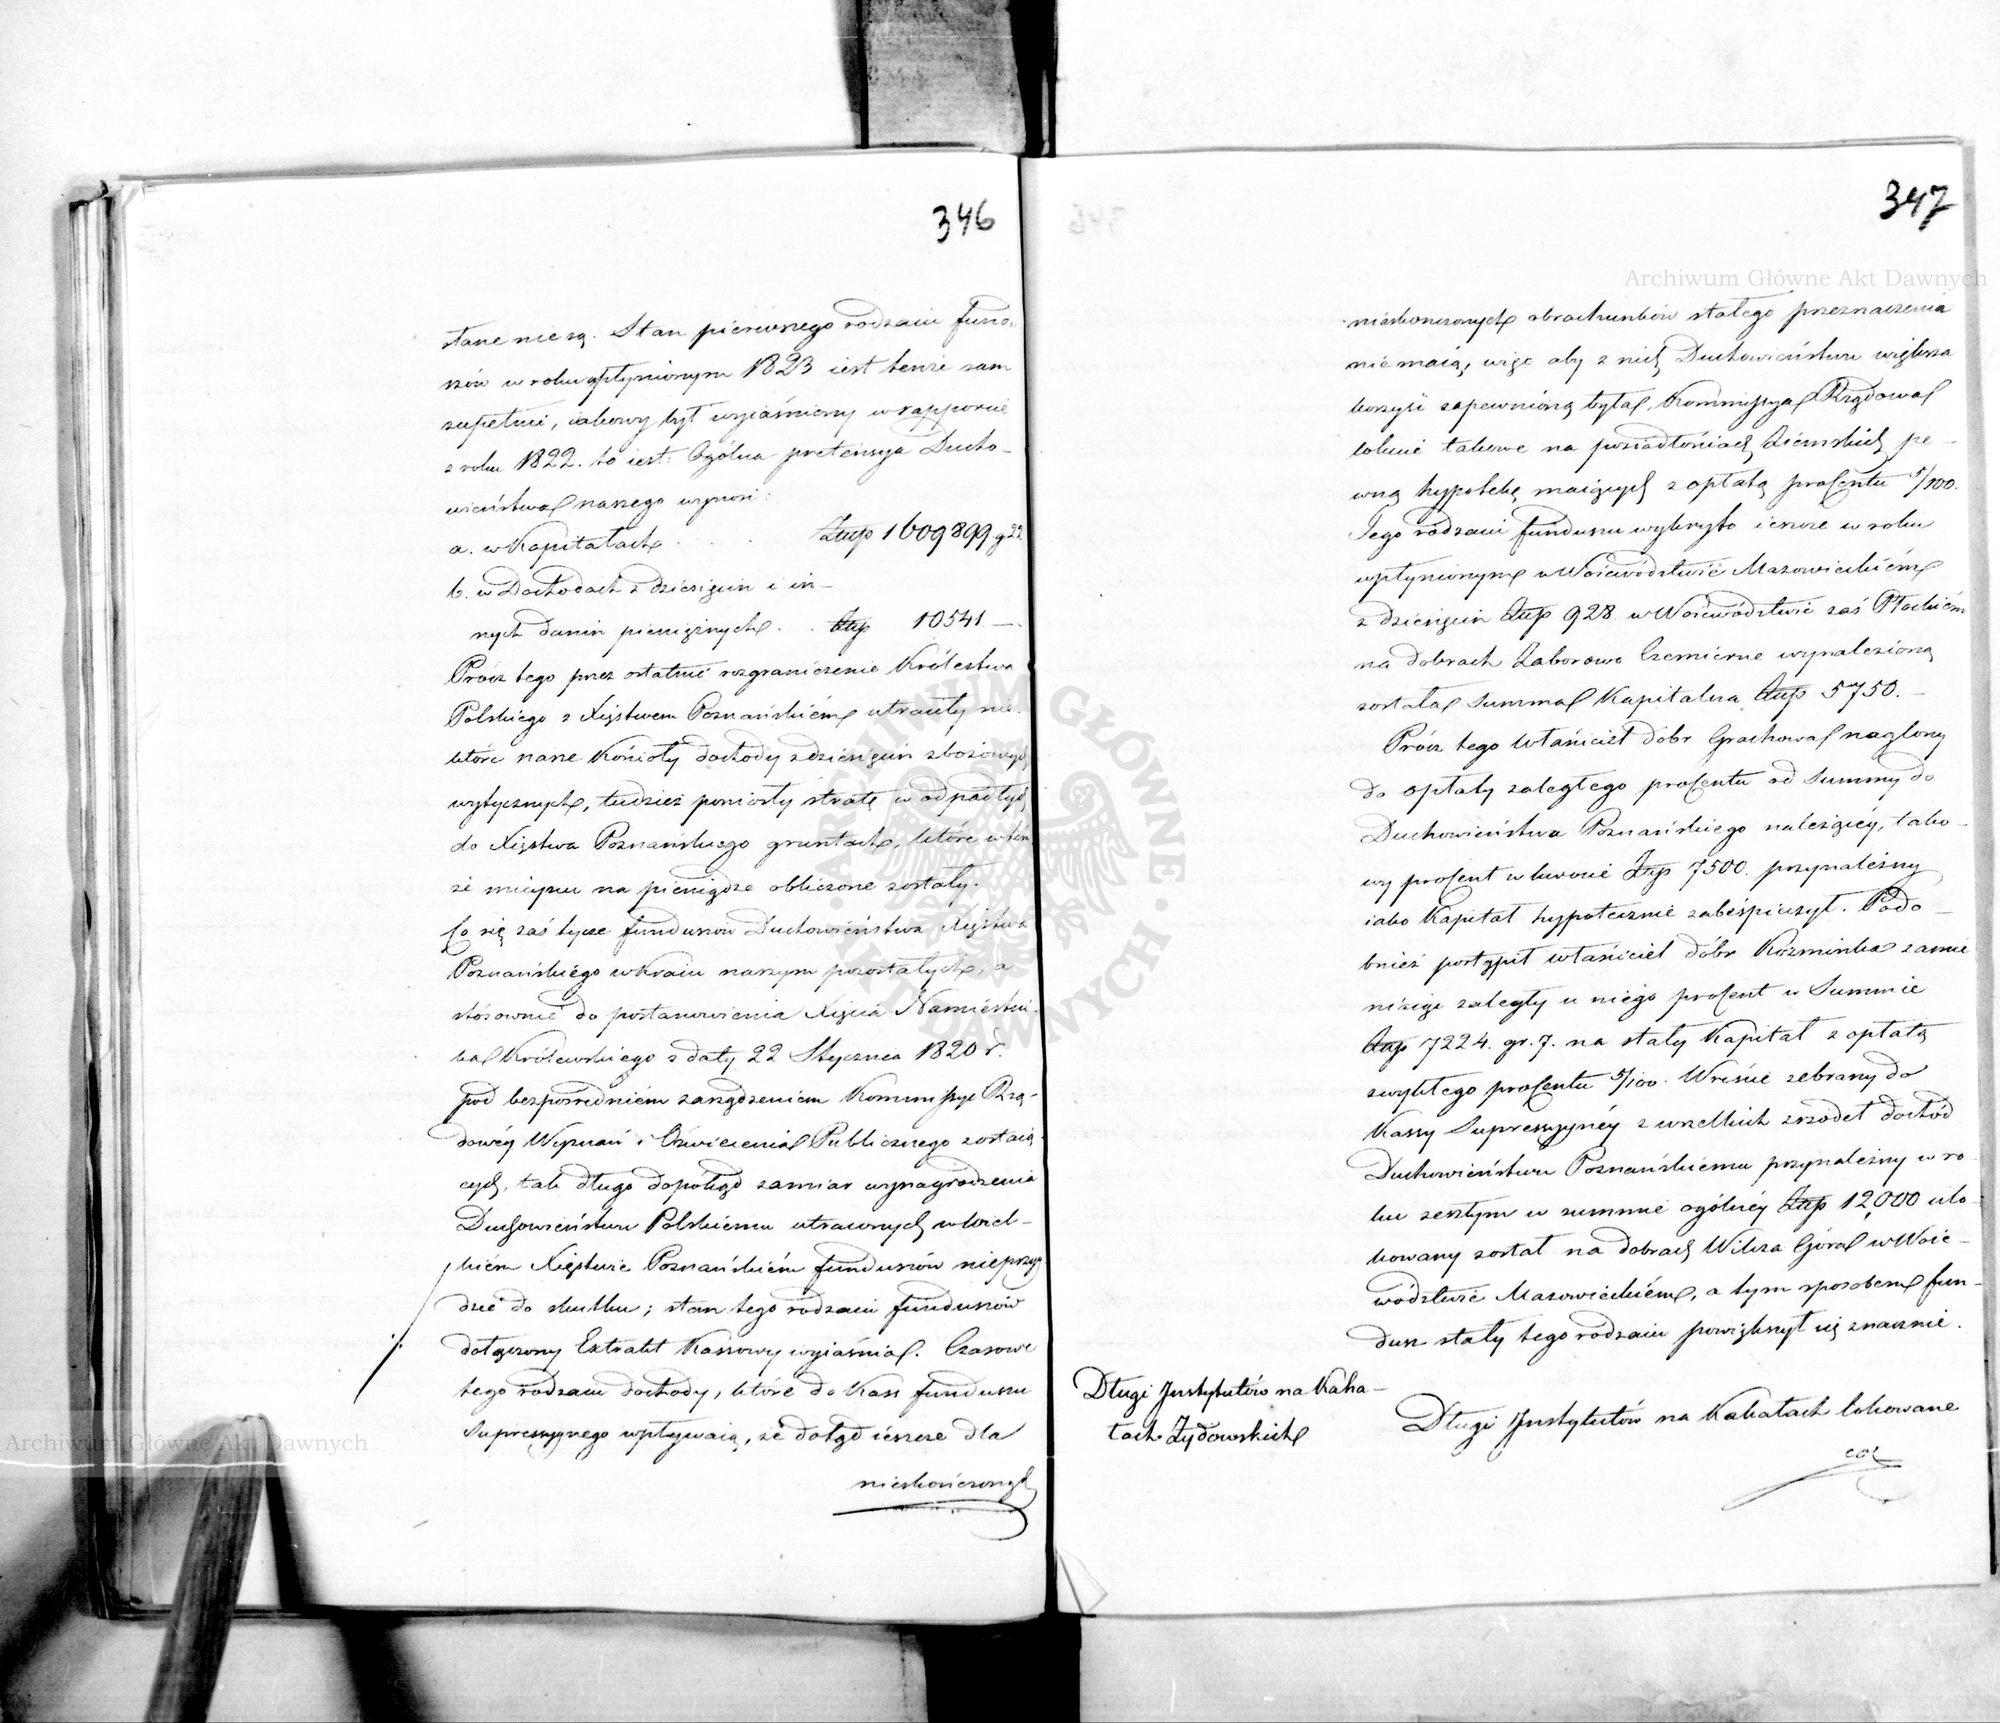 346
stane nie są. Stan pierwszego rodzaiu fundu
szów w roku upłynionym 1823 iest tenże sam
zupełnie, iakowy był wyiaśniony w rapporcie
z roku 1822. to iest: Ogólna pretensya Ducho-
wieństwa naszego wynosi:
a. w Kapitałach . . . Złłp 1609899 g 22
b. w Dochodach z dziesięcin i in-
nych danin pieniężnych . . Złłp 10541 —.
Prócz tego przez ostatnie rozgraniczenie Królestwa
Polskiego z Xięstwem Poznańskiém utraciły nie
które nasze Kościoły dochody z dziesięcin zbożowych
wytycznych, tudzież poniosły stratę w odpadłych
do Xięstwa Poznańskiego gruntach, które w tém
że mieyscu na pieniądze obliczone zostały.
Co się zaś tycze funduszów Duchowieństwa Xięstwa
Poznańskiégo w kraiu naszym pozostałych, a
stósownie do postanowienia Xięcia Namiestni-
ka Królewskiego z daty 22 Stycznia 1820 r.
pod bezpośredniém zarządzeniem Kommissyi Rzą-
dowéy Wyznań i Oświecenia Publicznego zostaią
cych, tak długo dopókąd zamiar wynagrodzenia
Duchowieństwu Polskiému utraconych w wiel-
kiém Xięstwie Poznańskiém funduszów nie przy
dzie do skutku; stan tego rodzaiu funduszów
dołączony Extrakt Kassowy wyiaśnia. Czasowe
tego rodzaiu dochody, które do Kass funduszu
Supressyynego wpływaią, że dotąd ieszcze dla
nieskończonych
347
nieskończonych obrachunków stałego przeznaczenia
nie maią, więc aby z nich Duchowieństwu większa
korzyść zapewnioną była, Kommissya Rządowa
lokuie takowe na posiadłościach Ziemskich pe-
wną hypotekę maiących z opłatą procentu 5/100.
Tego rodzaiu funduszu wykryto ieszcze w roku
upłynionym w Woiewództwie Mazowieckiém
z dziesięcin Złłp 928 w Woiewództwie zaś Płockiém
na dobrach Zaborowo Czemierne wynaleziona
została Summa Kapitalna Złłp 5750. —
Prócz tego właściciel dóbr Grachowa naglony
do opłaty zaległego procentu od Summy do
Duchowieństwa Poznańskiego należącéy, tako-
wy procent w kwocie Złłp 7500. przynależny
iako Kapitał hypotecznie zabéspieczył. Podo-
bnież postąpił właściciel dóbr Koźminka zamie
niaiąc zaległy u niégo procent w Summie
Złłp 7224. gr. 7. na stały Kapitał z opłatą
zwykłego procentu 5/100. Wreście zebrany do
Kassy Supressyynéy z wszelkich zrzodeł dochód
Duchowieństwu Poznańskiemu przynależny w ro-
ku zeszłym w summie ogólnéy Złłp 12,000 ulo-
kowany został na dobrach Wilcza Góra w Woie-
wództwie Mazowieckiém, a tym sposobem fun-
dusz stały tego rodzaiu powiększył się znacznie.
Długi Instytutów na Kaha-
łach Żydowskich
Długi Instytutów na Kahałach lokowane
Archiwum Główne Akt Dawnych
Archiwum Główne Akt Dawnych
ARCHIWUM GŁÓWNE AKT DAWNYCH